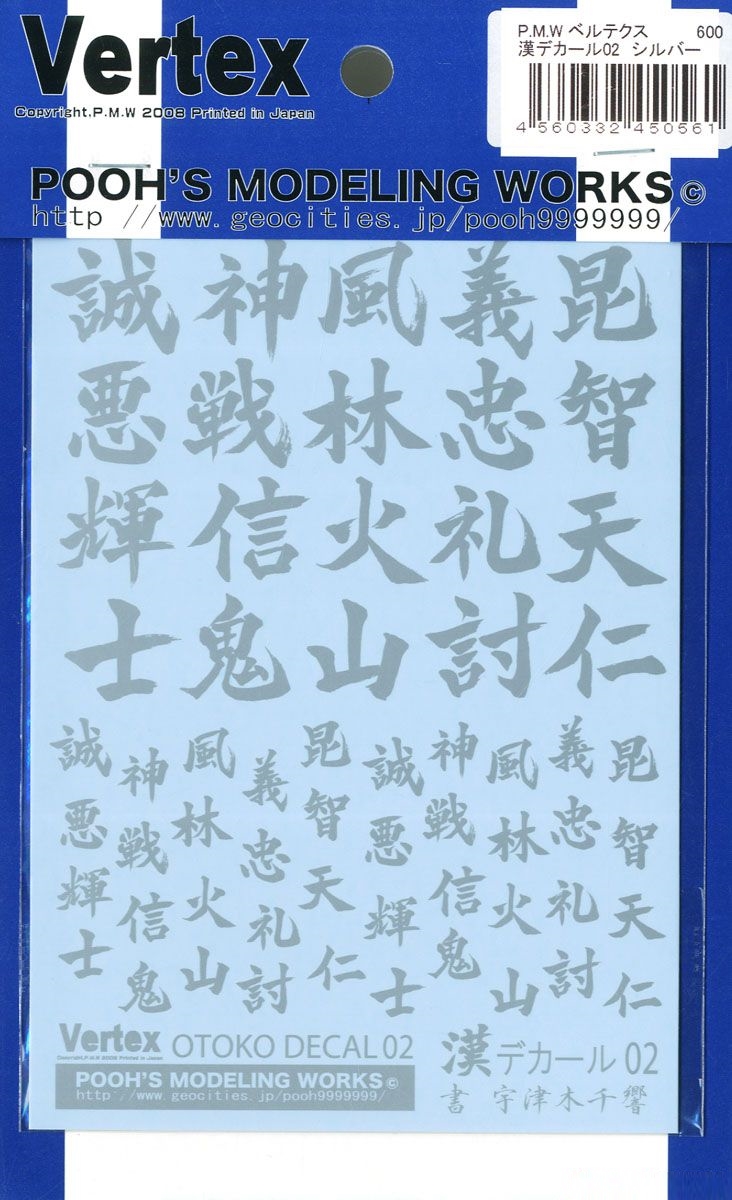 Vertex
Copyright.P.M.W 2008 Printed in Japan
P.M.W ベルテクス 600
漢デカール02 シルバー
4 560332 450561
POOH'S MODELING WORKS©
http //www.geocities.jp/pooh9999999/
誠 神 風 義 昆
悪 戦 林 忠 智
輝 信 火 礼 天
士 鬼 山 討 仁
誠 神 風 義 昆 誠 神 風 義 昆
悪 戦 林 忠 智 悪 戦 林 忠 智
輝 信 火 礼 天 輝 信 火 礼 天
士 鬼 山 討 仁 士 鬼 山 討 仁
Vertex
Copyright.P.M.W 2008 Printed in Japan
OTOKO DECAL 02
漢デカール 02
POOH'S MODELING WORKS©
http://www.geocities.jp/pooh9999999/
書 宇津木千響